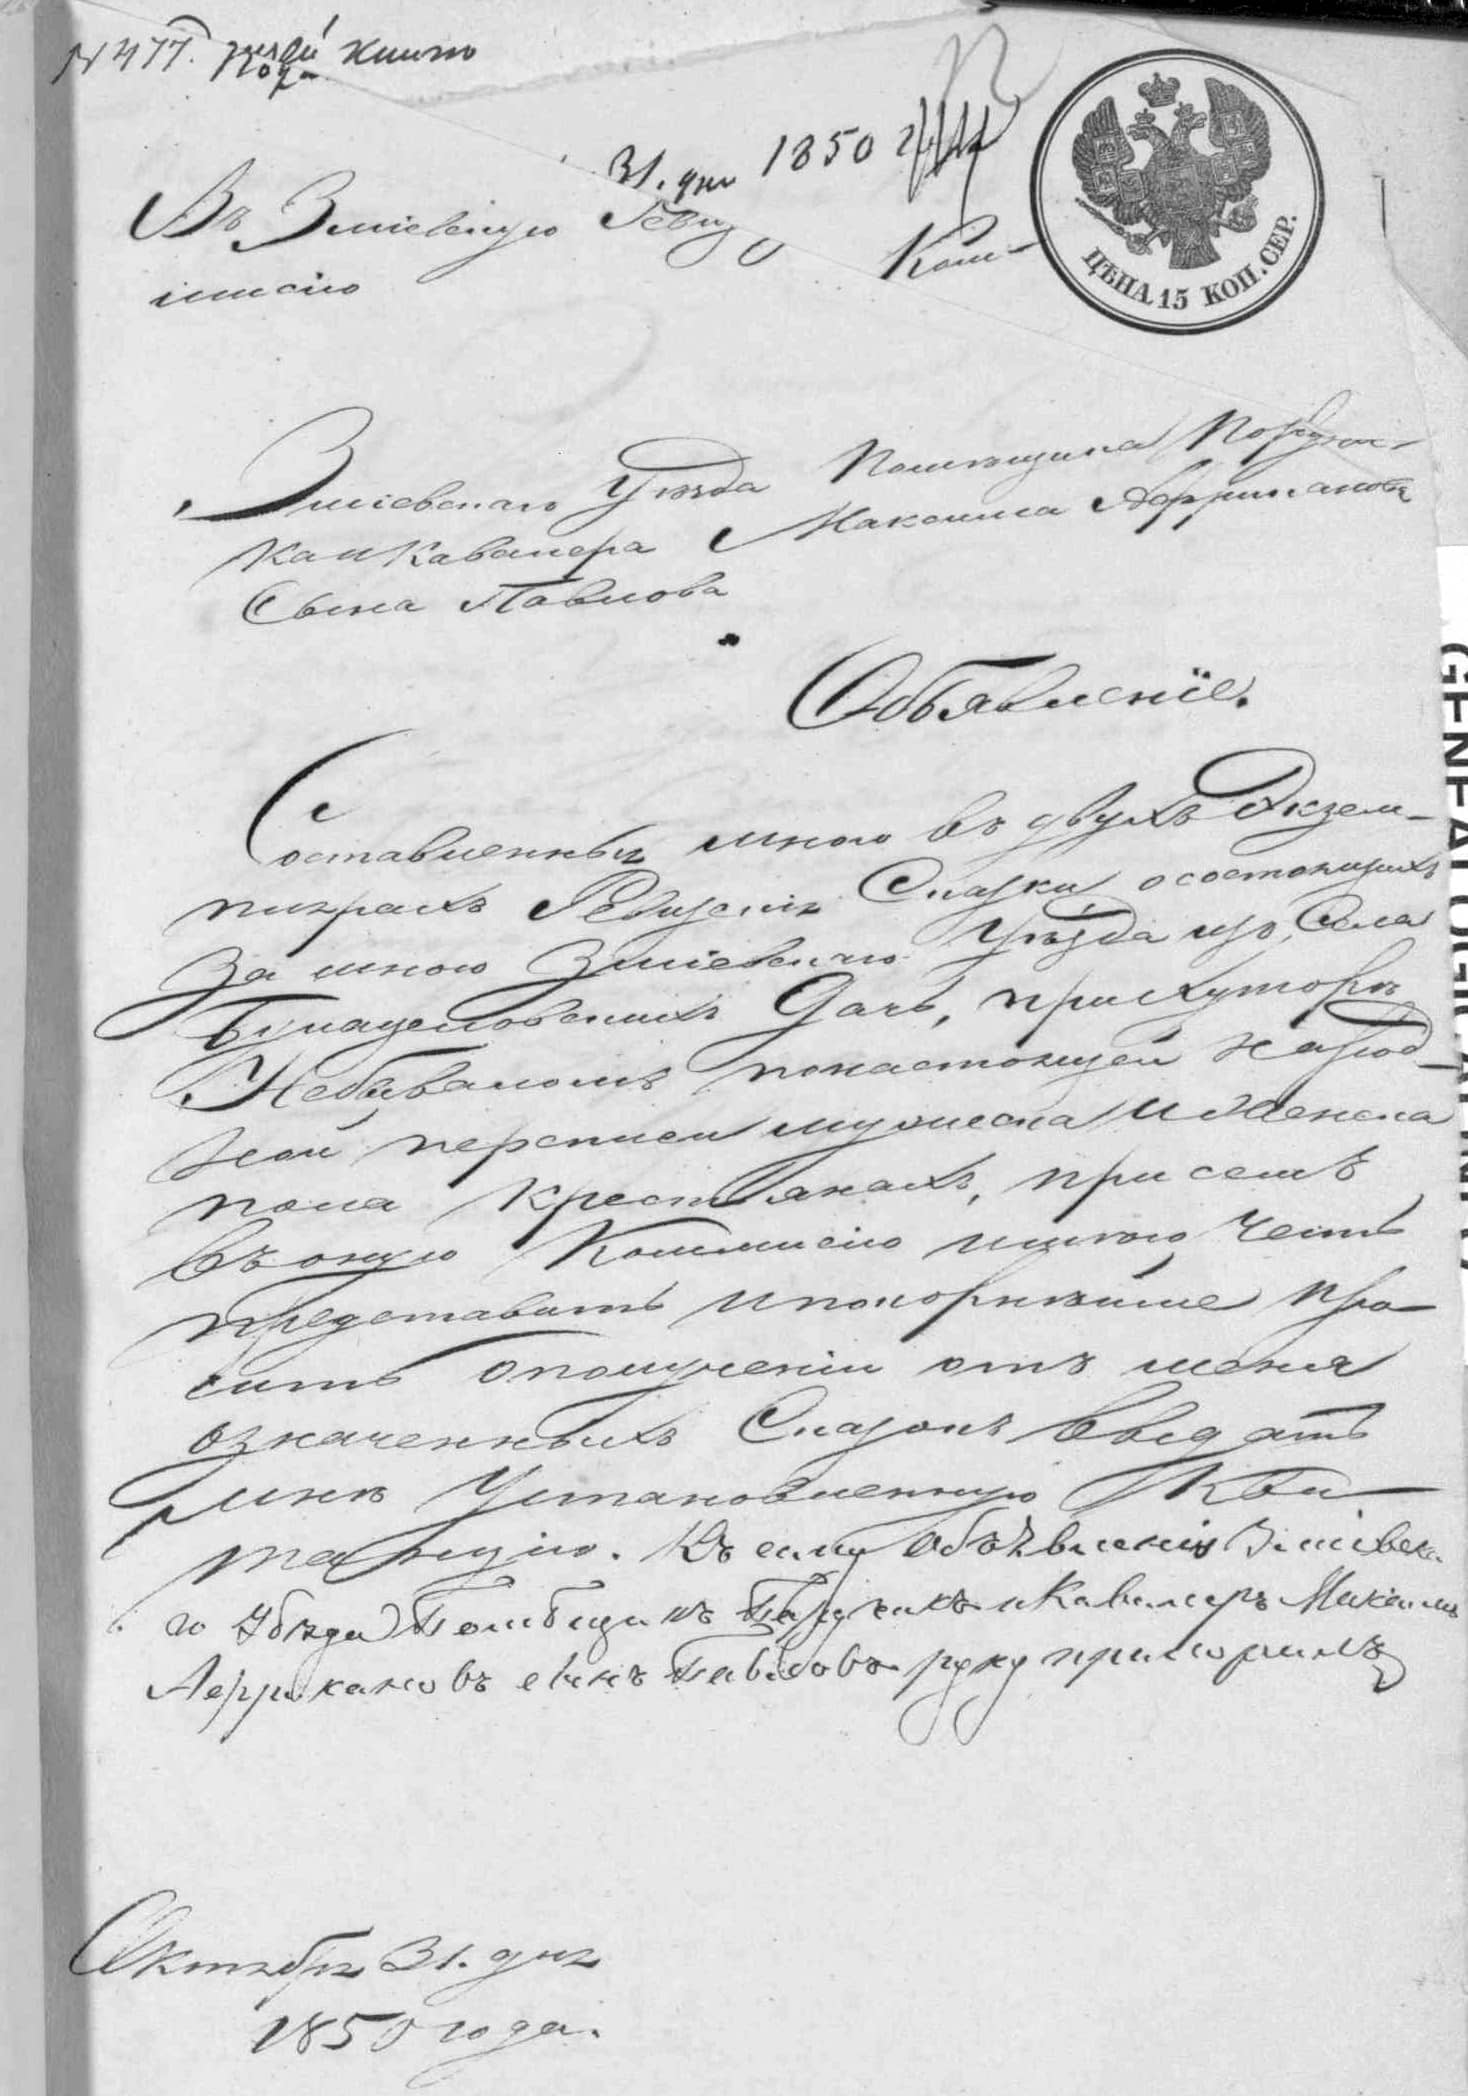 N 477.
31. дня 1850
Въ Зміевскую Реви Ком-
мисію
ЦѢНА 15 КОП. СЕР.
Зміевскаго Уѣзда Помѣщика Поручи-
ка и Кавалера Максима Африканова
Сына Павлова
Объявленіе.
Составленныя мною въ двухъ Экзем-
плярахъ Ревизскія Сказки о состоящихъ
За мною Зміевскаго Уѣзда изъ Села
Дачь, при хуторѣ
Небываломъ по настоящей народ-
ной переписи мужеска и женска
пола крестьянахъ, при семъ
въ оную Коммисію имѣю честь
представить и покорнѣйше про-
сить о полученіи отъ меня
означенныхъ Сказокъ выдать
мнѣ Установленную Кви-
танцію. Къ сему Объявленію Зміевска-
го Уѣзда Помѣщикъ Поручикъ и Кавалеръ Максимъ
Африкановъ сынъ Павловъ руку приложилъ
Октября 31. дня
1850 года.
GENEALOGICAL